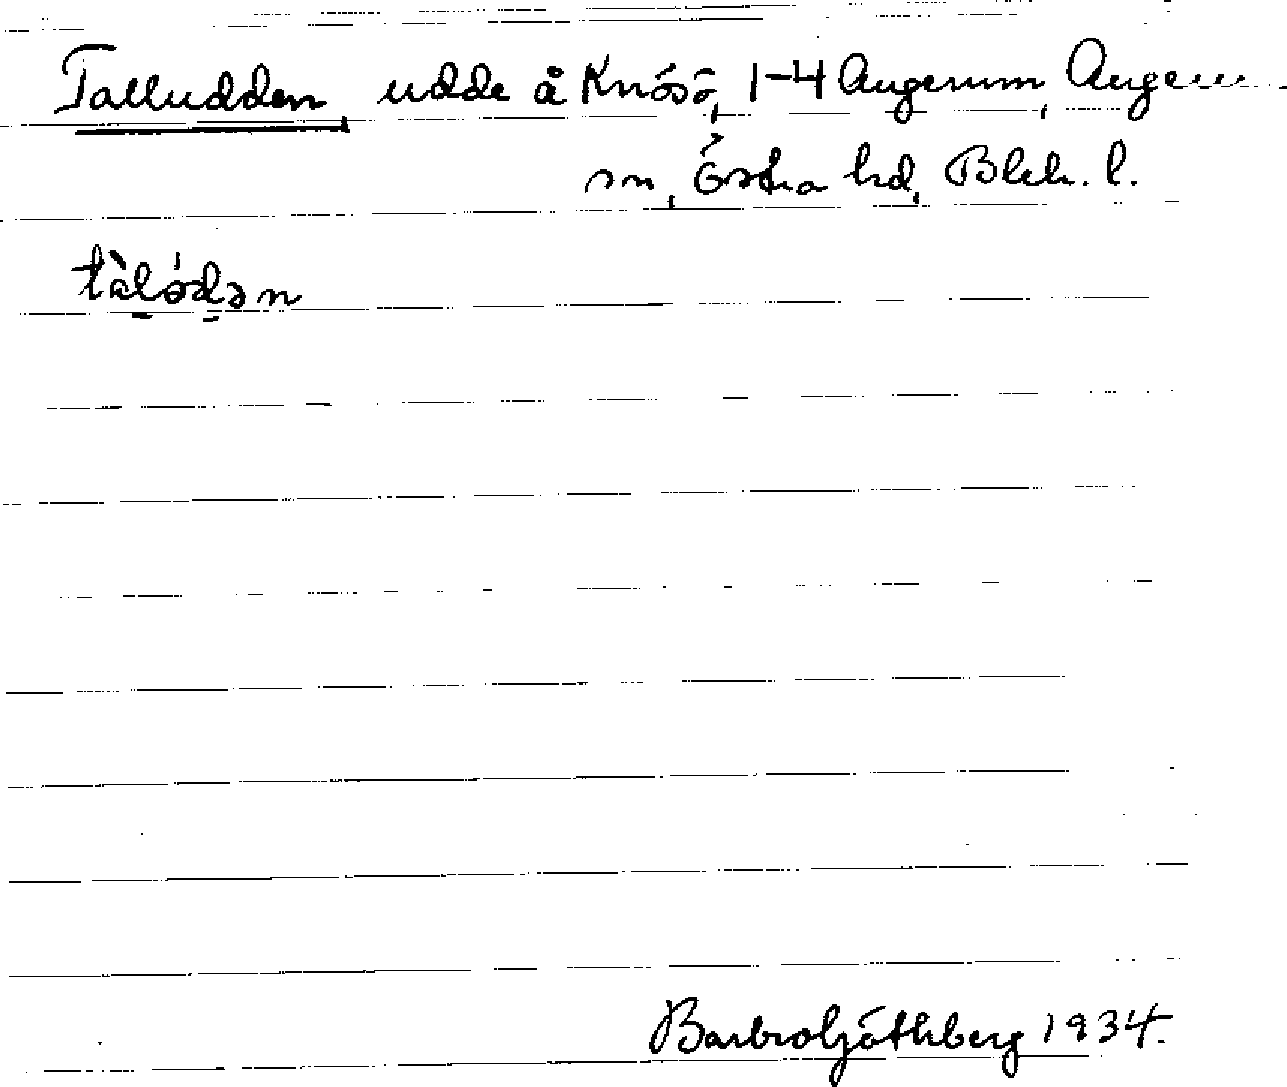 Talludden, udde å Knösö, 1-4 Augerum, Augerum
sn, Östra hd, Blek. l.
tàlǿdən
Barbro Göthberg 1934.